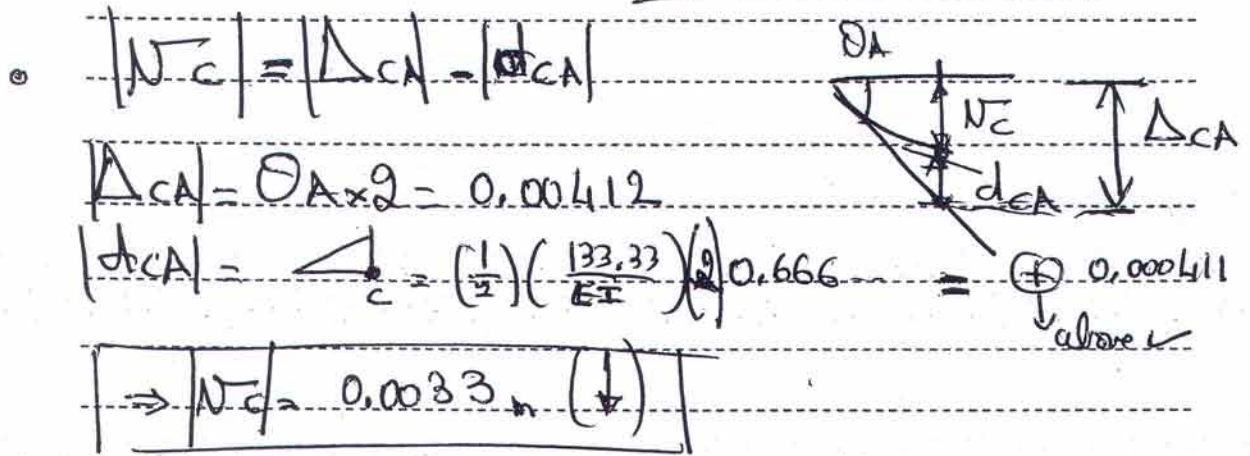 |Vc| = |ΔCA| - |dCA|
θA
Vc
ΔCA
dCA
|ΔCA| = θA×2 = 0.00412
|dCA| = C = (1/2)(133.33/EI)(2)0.666... = ⊕ 0.000411
above ✓
⇒ |Vc| = 0.0033 m (↓)